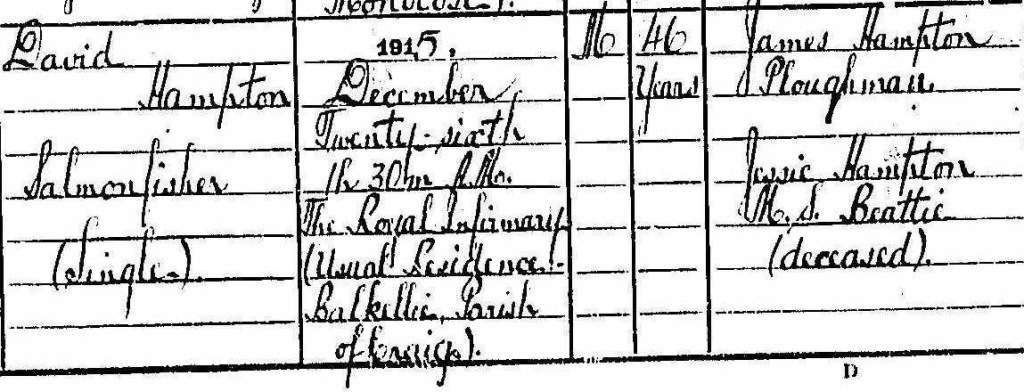 David
Hampton
Salmonfisher
(Single.)
1915,
December
Twenty-sixth
1h 30m A.M.
The Royal Infirmary
(Usual Residence:-
Balkillie, Parish
of Craig).
M
46
Years
James Hampton
Ploughman
Jessie Hampton
M.S. Beattie
(deceased).
D